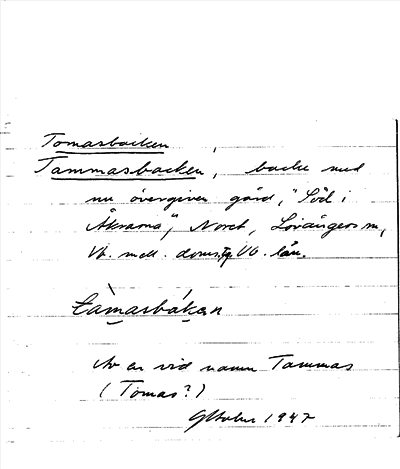 Tomasbacken
Tammasbacken, backe med
nu övergiven gård, "Söd i
Åkrarna", Noret, Lövångers sn,
Vb. mell. doms. Vb. län.
tamasbakan
Av en vid namn Tammas
(Tomas?)
Oktober 1947